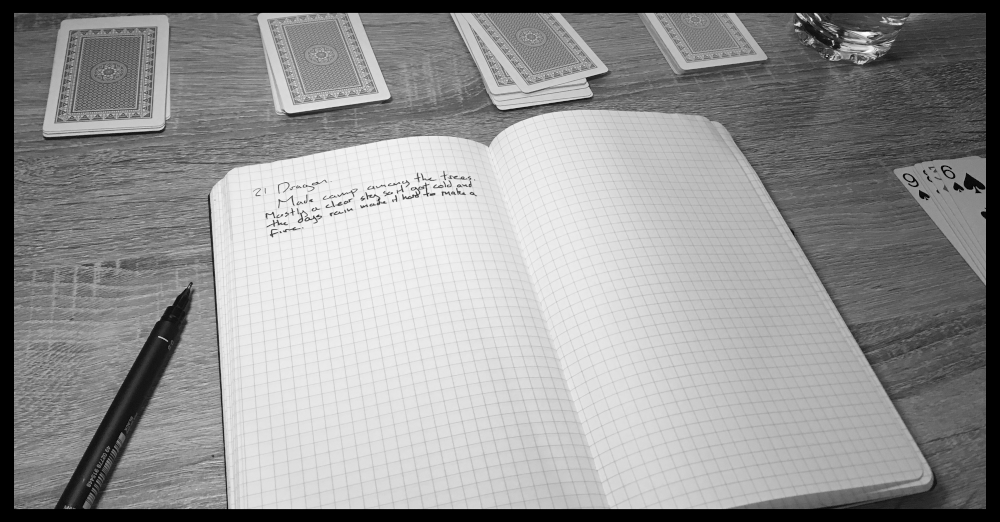 21 Dragon
Made camp among the trees.
Mostly a clear sky so it got cold and
the days rain made it hard to make a
fire.
9
6